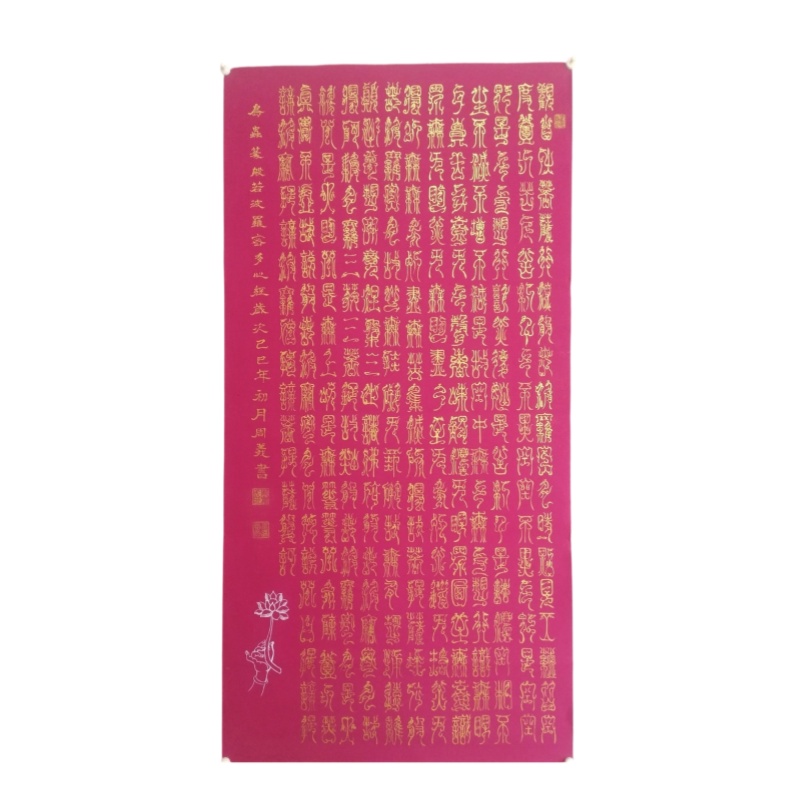 觀自在菩薩行深般若波羅蜜多時照見五蘊皆空
度一切苦厄舍利子色不異空空不異色色即是空空
即是色受想行識亦復如是舍利子是諸法空相不
生不滅不增不減是故空中無色無受想行識無眼
耳鼻舌身意無色聲香味觸法無眼界乃至無意識
界無無明亦無無明盡乃至無老死亦無老死盡無
苦集滅道無智亦無得以無所得故菩提薩埵依般
若波羅蜜多故心無罣礙無罣礙故無有恐怖遠離
顛倒夢想究竟涅槃三世諸佛依般若波羅蜜多故
得阿耨多羅三藐三菩提故知般若波羅蜜多是大
神咒是大明咒是無上咒是無等等咒能除一切苦
真實不虛故說般若波羅蜜多咒即說咒曰揭諦揭
諦波羅揭諦波羅僧揭諦菩提薩婆訶
鳥蟲篆般若波羅密多心經歲次己巳年初月周義書